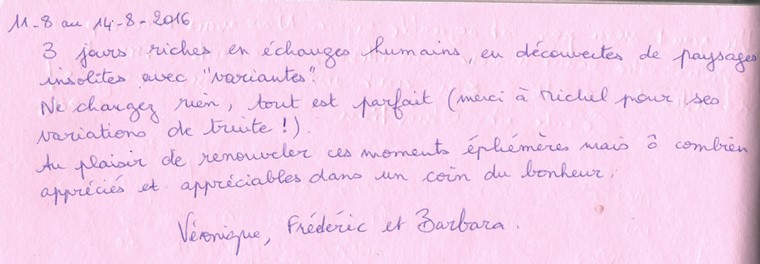 11-8 au 14-8-2016
3 jours riches en échanges humains, en découvertes de paysages
insolites avec "variantes".
Ne changez rien, tout est parfait (merci à Michel pour ses
variations de truite !).
Au plaisir de renouveler ces moments éphémères mais ô combien
appréciés et appréciables dans un coin du bonheur.
Véronique, Frédéric et Barbara.